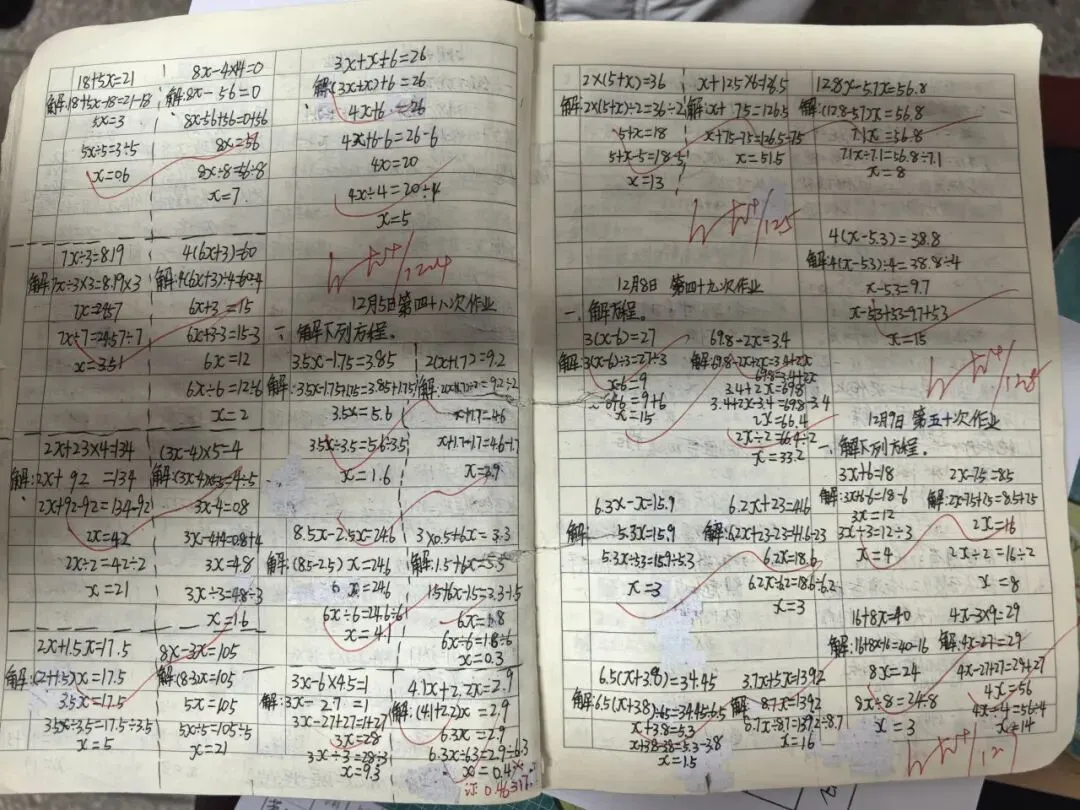 18+5x=21
解:18+5x-18=21-18
5x=3
5x÷5=3÷5
x=0.6
8x-4×14=0
解:8x-56=0
8x-56+56=0+56
8x=56
8x÷8=56÷8
x=7
3x+x+6=26
解:(3x+x)+6=26
4x+6=26
4x+6-6=26-6
4x=20
4x÷4=20÷4
x=5
7x÷3=8.19
解:7x÷3×3=8.19×3
7x=24.57
7x÷7=24.57÷7
x=3.51
4(6x+3)=60
解:4(6x+3)÷4=60÷4
6x+3=15
6x+3-3=15-3
6x=12
6x÷6=12÷6
x=2
2x+23×4=134
解:2x+92=134
2x+92-92=134-92
2x=42
2x÷2=42÷2
x=21
(3x-4)×5=4
解:(3x-4)×5÷5=4÷5
3x-4=0.8
3x-4+4=0.8+4
3x=4.8
3x÷3=4.8÷3
x=1.6
2x+1.5x=17.5
解:(2+1.5)x=17.5
3.5x=17.5
3.5x÷3.5=17.5÷3.5
x=5
8x-3x=105
解:(8-3)x=105
5x=105
5x÷5=105÷5
x=21
12/4
12月5日第四十八次作业
一、解下列方程。
3.5x-1.75=3.85
解:3.5x-1.75+1.75=3.85+1.75
3.5x=5.6
3.5x÷3.5=5.6÷3.5
x=1.6
2(x+1.7)=9.2
解:2(x+1.7)÷2=9.2÷2
x+1.7=4.6
x+1.7-1.7=4.6-1.7
x=2.9
8.5x-2.5x=24.6
解:(8.5-2.5)x=24.6
6x=24.6
6x÷6=24.6÷6
x=4.1
3×0.5+6x=3.3
解:1.5+6x=3.3
1.5+6x-1.5=3.3-1.5
6x=1.8
6x÷6=1.8÷6
x=0.3
3x-6×4.5=1
解:3x-27=1
3x-27+27=1+27
3x=28
3x÷3=28÷3
x=9.3
4.1x+2.2x=2.9
解:(4.1+2.2)x=2.9
6.3x=2.9
6.3x÷6.3=2.9÷6.3
x=0.4
0.46317
2×(5+x)=36
解:2×(5+x)÷2=36÷2
5+x=18
5+x-5=18-5
x=13
x+12.5×6=126.5
解:x+75=126.5
x+75-75=126.5-75
x=51.5
12.8x-5.7x=56.8
解:(12.8-5.7)x=56.8
7.1x=56.8
7.1x÷7.1=56.8÷7.1
x=8
12/5
12月8日 第四十九次作业
一、解方程。
3(x-6)=27
解:3(x-6)÷3=27÷3
x-6=9
x-6+6=9+6
x=15
69.8-2x=3.4
解:69.8-2x+2x=3.4+2x
69.8=3.4+2x
3.4+2x=69.8
3.4+2x-3.4=69.8-3.4
2x=66.4
2x÷2=66.4÷2
x=33.2
6.3x-x=15.9
解:5.3x=15.9
5.3x÷5.3=15.9÷5.3
x=3
6.2x+23=41.6
解:6.2x+23-23=41.6-23
6.2x=18.6
6.2x÷6.2=18.6÷6.2
x=3
6.5(x+3.8)=34.45
解:6.5(x+3.8)÷6.5=34.45÷6.5
x+3.8=5.3
x+3.8-3.8=5.3-3.8
x=1.5
3.7x+5x=139.2
解:8.7x=139.2
8.7x÷8.7=139.2÷8.7
x=16
4(x-5.3)=38.8
解:4(x-5.3)÷4=38.8÷4
x-5.3=9.7
x-5.3+5.3=9.7+5.3
x=15
12/8
12月9日 第五十次作业
一、解下列方程。
3x+6=18
解:3x+6-6=18-6
3x=12
3x÷3=12÷3
x=4
2x-7.5=8.5
解:2x-7.5+7.5=8.5+7.5
2x=16
2x÷2=16÷2
x=8
16+8x=40
解:16+8x-16=40-16
8x=24
8x÷8=24÷8
x=3
4x-3×9=29
解:4x-27=29
4x-27+27=29+27
4x=56
4x÷4=56÷4
x=14